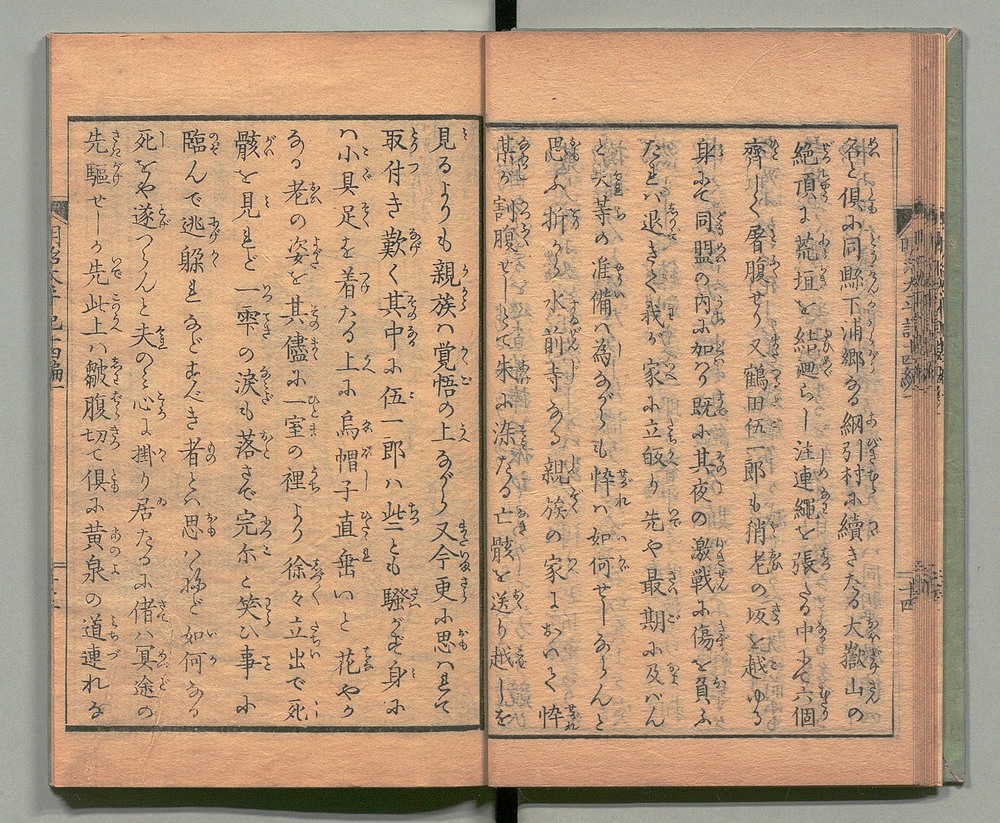 名と倶ふ同縣下浦郷なる綱引村ふ續きたる大嶽山の
絶頂に荒垣を結廻らし注連繩を張たる中にて六個
齊しく屠腹せり又鶴田伍一郎も稍老の坂を越ゆる
身にて同盟の内ふ加り既ふ其夜の激戰ふ傷を負ふ
たれバ退きて我が家ふ立皈り先や最期ふ及バん
と夫等の准備ハ為ながらも忰ハ如何せしならんと
思ふ折から水前寺なる親族の家において忰
某が割腹せしとて朱ふ染たる亡骸を送り越しを
見るよりも親族ハ覚悟の上ながら又今更ふ思ハれて
取付き歎く其中ふ伍一郎ハ些とも騒がず身ふ
ハ小具足を着たる上ふ烏帽子直垂いと花やか
なる老の姿を其儘ふ一室の裡より徐々立出で死
骸を見れど一雫の涙も落さで完尓と笑ひ事ふ
臨んで逃躱れなどすべき者とハ思ハねど如何なる
死をや遂つらんと夫のミ心に掛り居たるふ偖ハ冥途の
先驅せしか先此上ハ皺腹切て倶ふ黄泉の道連れな